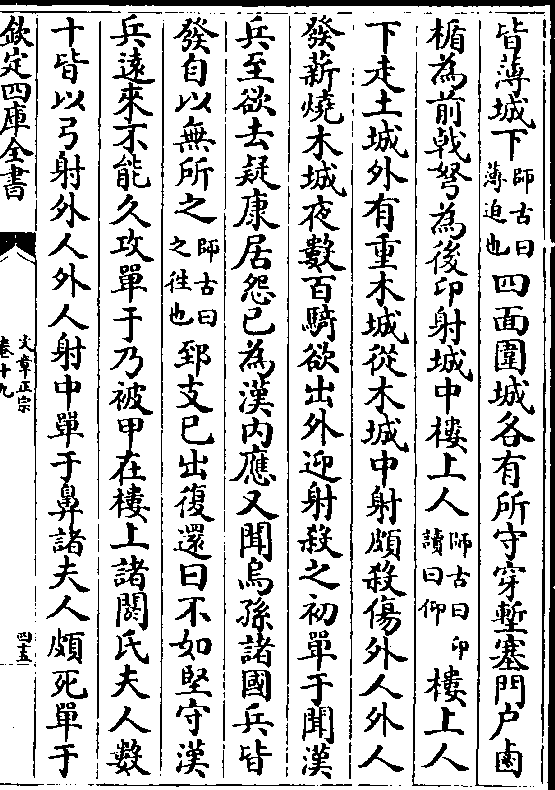 皆薄城下師古曰薄迫也四面圍城各有所守穿塹塞門户鹵
楯為前戟弩為後卬射城中樓上人師古曰卬讀曰仰樓上人
下走土城外有重木城從木城中射頗殺傷外人外人
發薪燒木城夜數百騎欲出外迎射殺之初單于聞漢
兵至欲去疑康居怨己為漢内應又聞烏孫諸國兵皆
發自以無所之師古曰之往也郅支已出復還曰不如堅守漢
兵遠來不能久攻單于乃被甲在樓上諸閼氏夫人數
十皆以弓射外人外人射中單于鼻諸夫人頗死單于
欽定四庫全書
文章正宗
卷十九
四十五